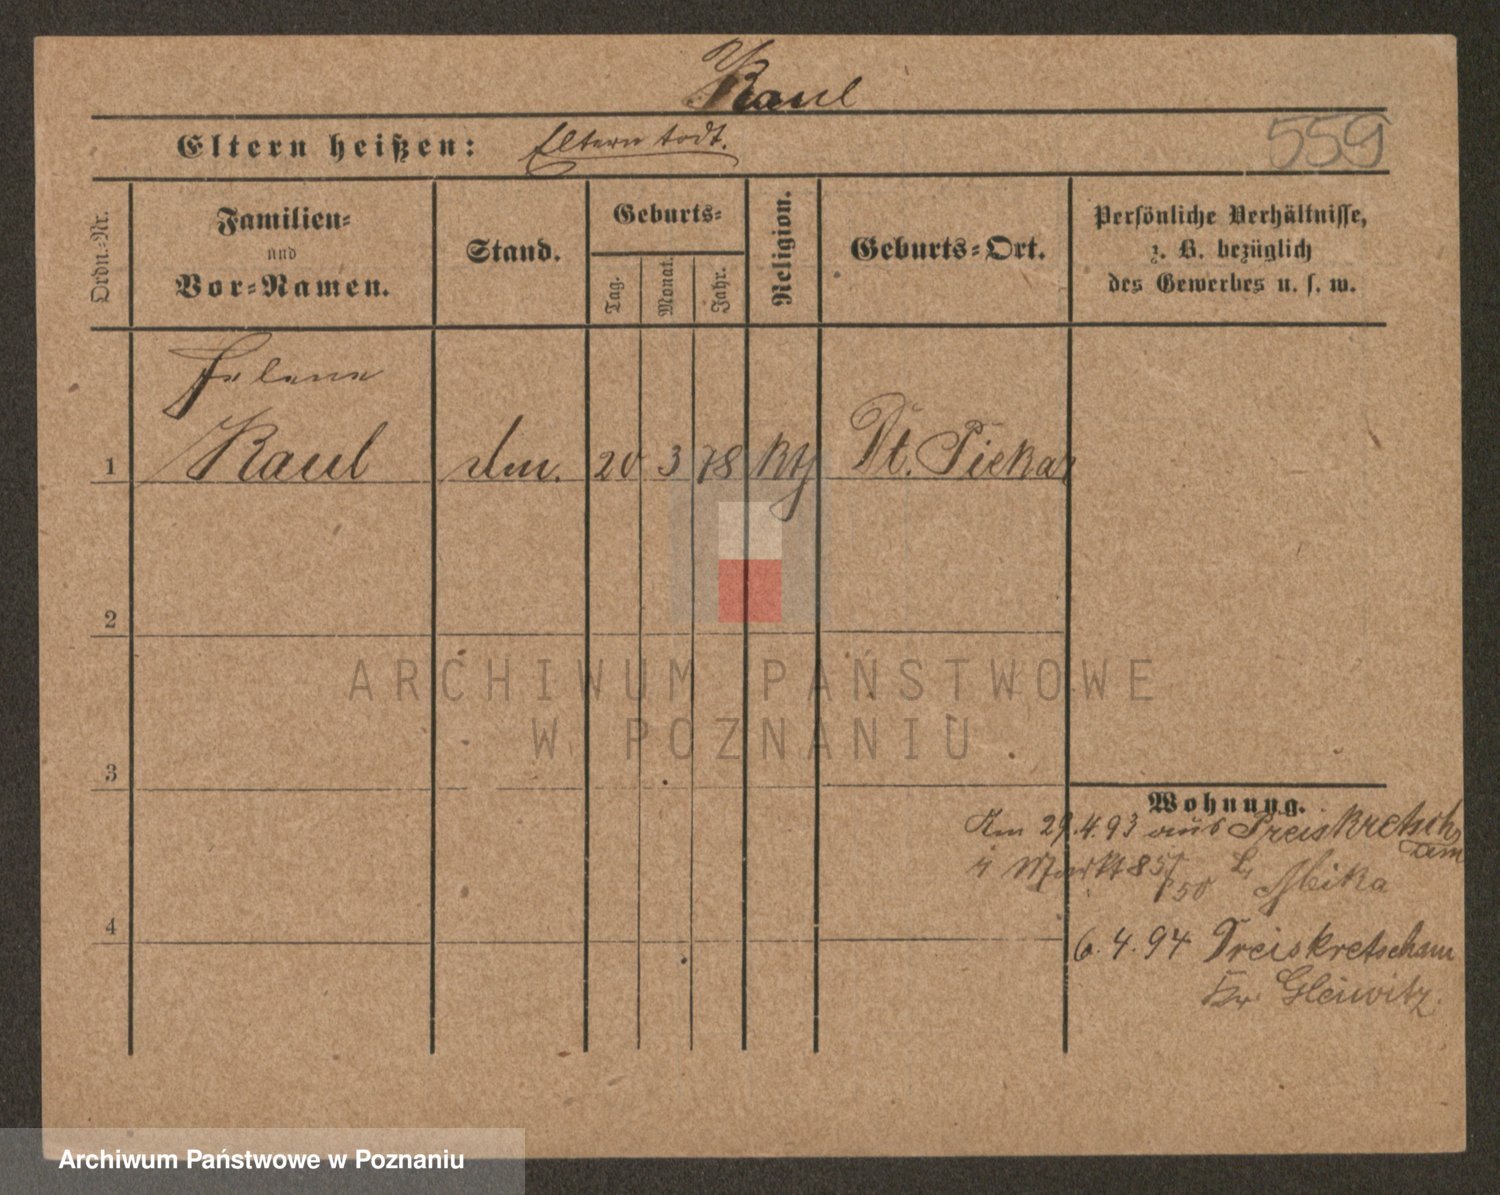 Kaul
Eltern heißen: Eltern todt.
559
Ordn.-Nr.
Familien-
und
Vor-Namen.
Stand.
Geburts-
Tag.
Monat.
Jahr.
Religion.
Geburts-Ort.
Persönliche Verhältnisse,
z. B. bezüglich
des Gewerbes u. s. w.
Helene
1 Kaul 20 3 78 kth Dt. Piekar
2
ARCHIWUM PAŃSTWOWE
W POZNANIU
3
Wohnung.
29.4.93 aus Preiskretsch
am
Markt 85/ 
50 b/ Mika
4
6.4.94 Preiskretscham
Kr Gleiwitz.
Archiwum Państwowe w Poznaniu